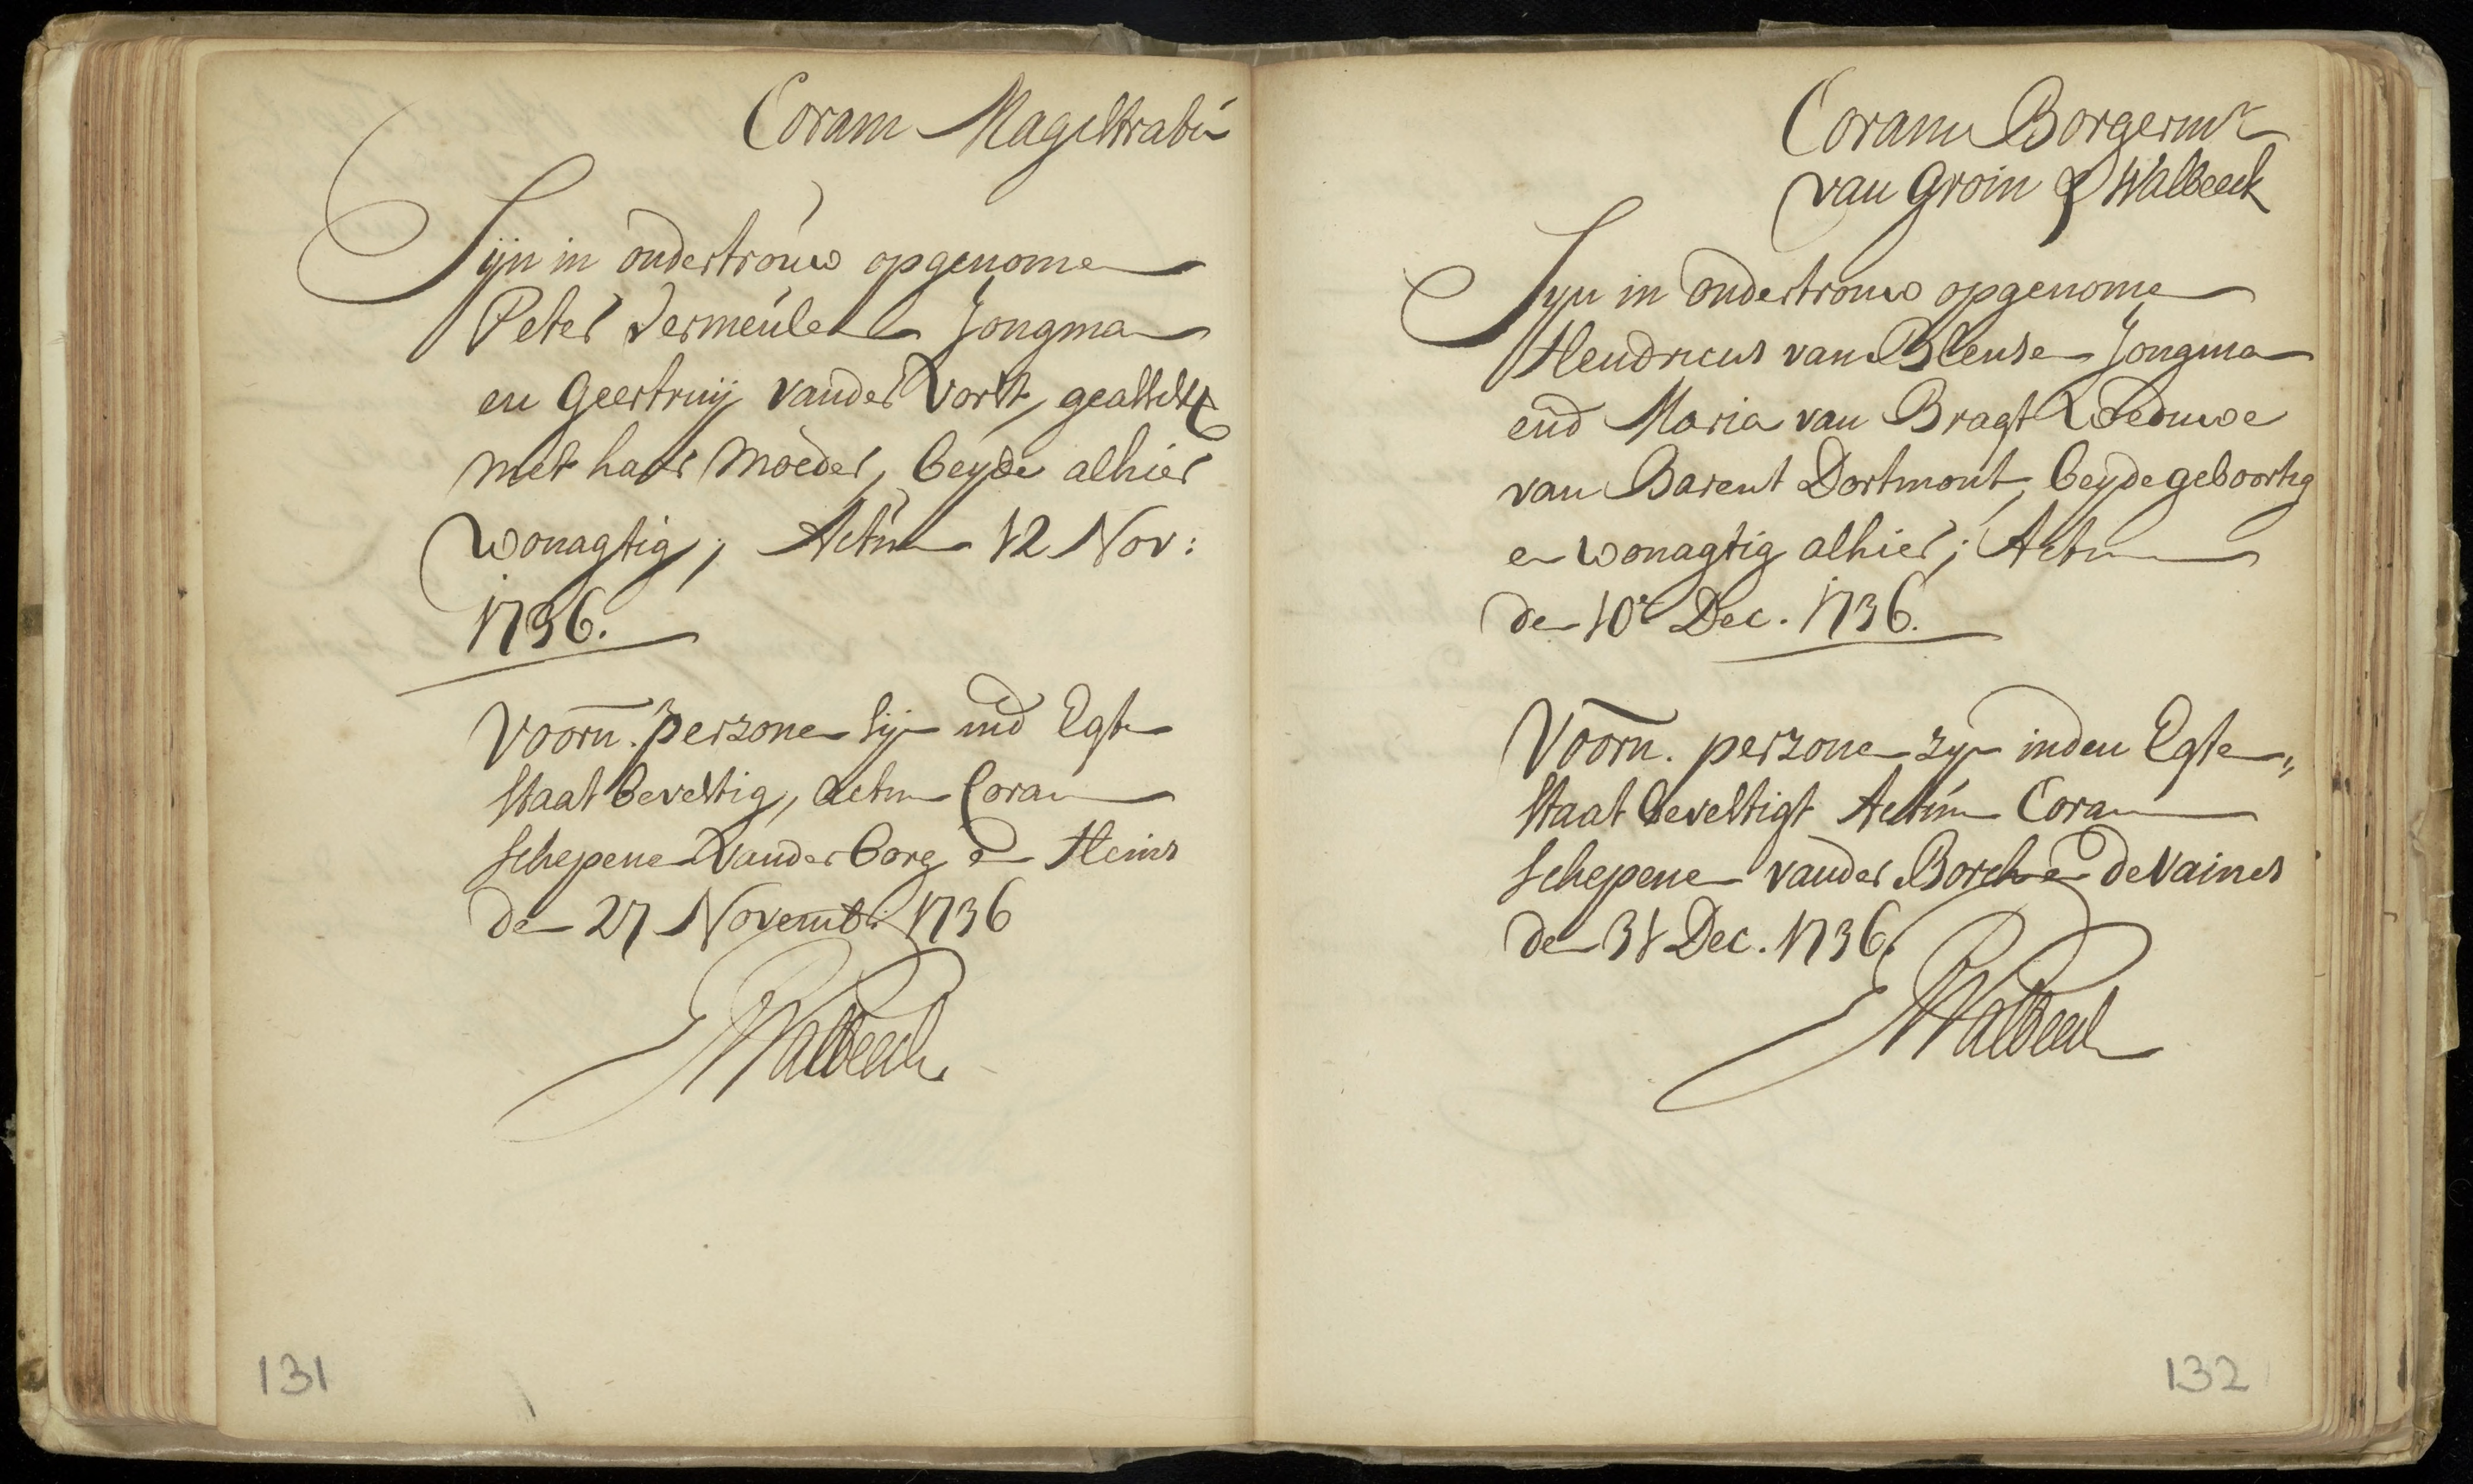 Coram Magistratu
Sijn in ondertrouw opgenomen
Peter Vermeulen Jongman
en Geertruij vander Vorst, geassist
met haar moeder, beyde alhier
wonagtig; Actum 12 Nov:
1736.
Voorn. perzonen sijn ind Egten
Staat bevestig, actum Coram
Schepenen vander borg en Heins
den 27 Novemb: 1736
Walbeeck
131
Coram Borgermr
van Groin & Walbeeck
Syn in ondertrouw opgenomen
Hendricus van Blensen Jongman
end Maria van Bragt Weduwe
van Barent Dortmont, beyde geboortig
en wonagtig alhier; Actum
den 10e Dec. 1736.
Voorn. perzonen zyn inden Egten
Staat bevestigt Actum Coram
Schepenen vander Borch en de Vaines
den 31 Dec. 1736.
Walbeeck
132